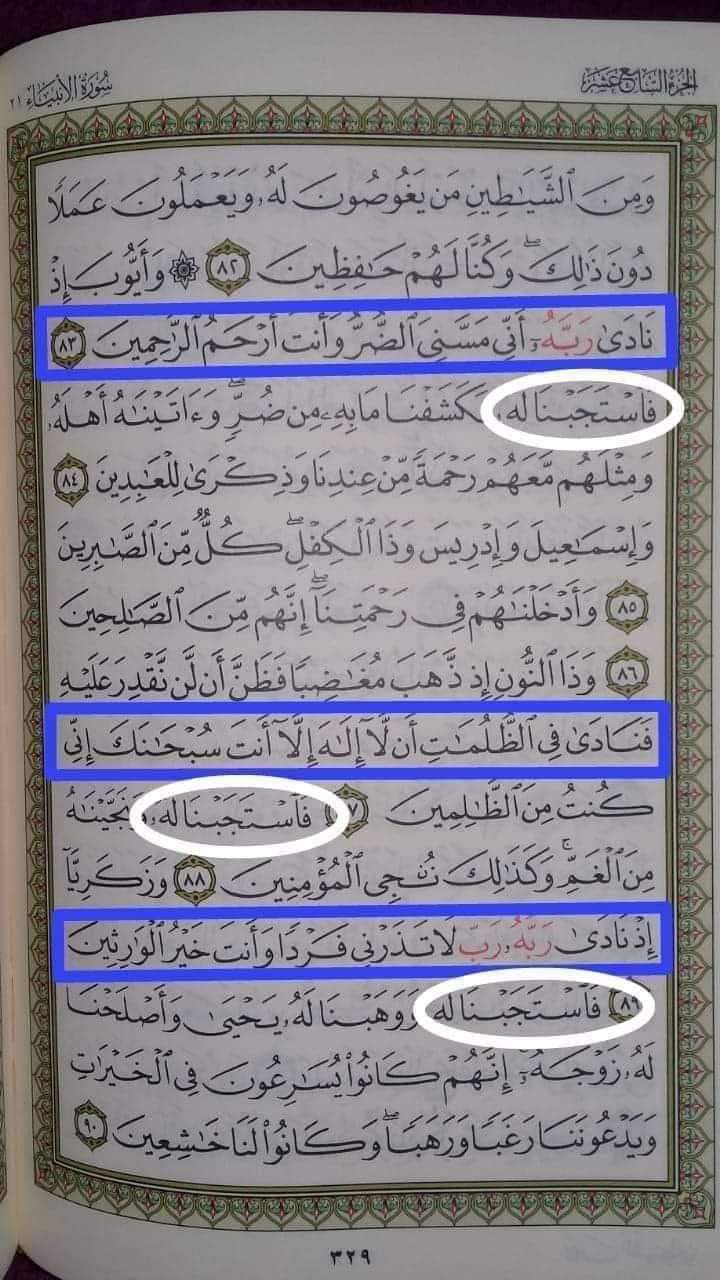 الجزء السابع عشر
سورة الأنبياء ٢١
وَمِنَ ٱلشَّيَٰطِينِ مَن يَغُوصُونَ لَهُۥ وَيَعْمَلُونَ عَمَلًا
دُونَ ذَٰلِكَۖ وَكُنَّا لَهُمْ حَٰفِظِينَ ٨٢ ۞ وَأَيُّوبَ إِذْ
نَادَىٰ رَبَّهُۥٓ أَنِّى مَسَّنِىَ ٱلضُّرُّ وَأَنتَ أَرْحَمُ ٱلرَّٰحِمِينَ ٨٣
فَٱسْتَجَبْنَا لَهُۥ فَكَشَفْنَا مَا بِهِۦ مِن ضُرٍّۖ وَءَاتَيْنَٰهُ أَهْلَهُۥ
وَمِثْلَهُم مَّعَهُمْ رَحْمَةً مِّنْ عِندِنَا وَذِكْرَىٰ لِلْعَٰبِدِينَ ٨٤
وَإِسْمَٰعِيلَ وَإِدْرِيسَ وَذَا ٱلْكِفْلِۖ كُلٌّ مِّنَ ٱلصَّٰبِرِينَ
٨٥ وَأَدْخَلْنَٰهُمْ فِى رَحْمَتِنَآۖ إِنَّهُم مِّنَ ٱلصَّٰلِحِينَ
٨٦ وَذَا ٱلنُّونِ إِذ ذَّهَبَ مُغَٰضِبًا فَظَنَّ أَن لَّن نَّقْدِرَ عَلَيْهِ
فَنَادَىٰ فِى ٱلظُّلُمَٰتِ أَن لَّآ إِلَٰهَ إِلَّآ أَنتَ سُبْحَٰنَكَ إِنِّى
كُنتُ مِنَ ٱلظَّٰلِمِينَ ٨٧ فَٱسْتَجَبْنَا لَهُۥ وَنَجَّيْنَٰهُ
مِنَ ٱلْغَمِّۚ وَكَذَٰلِكَ نُۨجِى ٱلْمُؤْمِنِينَ ٨٨ وَزَكَرِيَّآ
إِذْ نَادَىٰ رَبَّهُۥ رَبِّ لَا تَذَرْنِى فَرْدًا وَأَنتَ خَيْرُ ٱلْوَٰرِثِينَ
٨٩ فَٱسْتَجَبْنَا لَهُۥ وَوَهَبْنَا لَهُۥ يَحْيَىٰ وَأَصْلَحْنَا
لَهُۥ زَوْجَهُۥٓۚ إِنَّهُمْ كَانُوا۟ يُسَٰرِعُونَ فِى ٱلْخَيْرَٰتِ
وَيَدْعُونَنَا رَغَبًا وَرَهَبًاۖ وَكَانُوا۟ لَنَا خَٰشِعِينَ ٩٠
٣٢٩